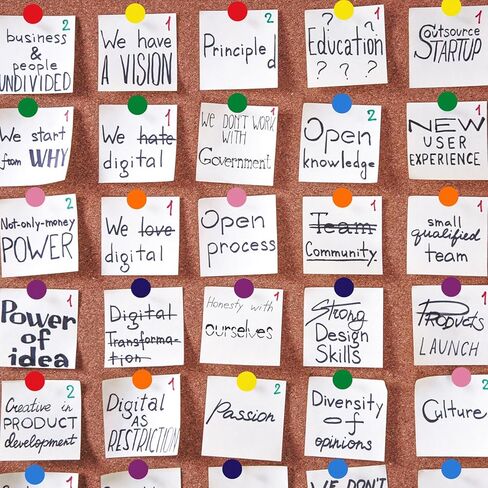 2
business
&
people
UNDIVIDED
1
We have
A VISION
2
Principled
1
? ? ?
Education
? ? ?
1
Outsource
STARTUP
1
We start
from WHY
1
We hate
digital
1
WE DON'T WORK
WITH
Government
2
Open
knowledge
1
NEW
USER
EXPERIENCE
2
Not-only-money
POWER
1
We love
digital
1
Open
process
1
Team
Community
1
small
qualified
team
1
Power
of
idea
Digital
Transforma-
tion
1
Honesty with
ourselves
Strong
Design
Skills
1
Products
LAUNCH
2
Creative in
PRODUCT
development
1
Digital
AS
RESTRICTION
2
Passion
2
Diversity
of
opinions
2
Culture
WE DON'T